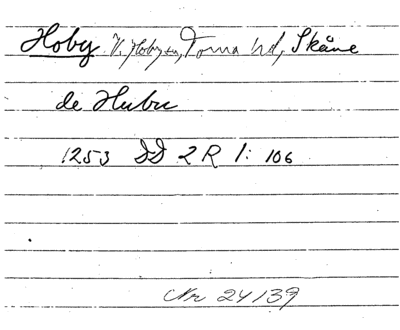 Hoby V. Hoby sn, Torna hd, Skåne
de Hubu
1253 DD 2 R 1: 106
Nr 24139